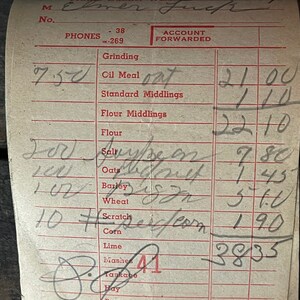 M Elmer
No.
PHONES - 38 - 269 ACCOUNT FORWARDED
Grinding
750 Oil Meal oat 21 00
Standard Middlings 1 10
Flour Middlings 22 10
Flour
200 Salt 9 80
100 Oats 1 45
100 Barley Pig 5 10
Wheat
10 # Scratch seed corn 1 90
Corn
Lime 38 35
Mashes 41
Tankage
Hay